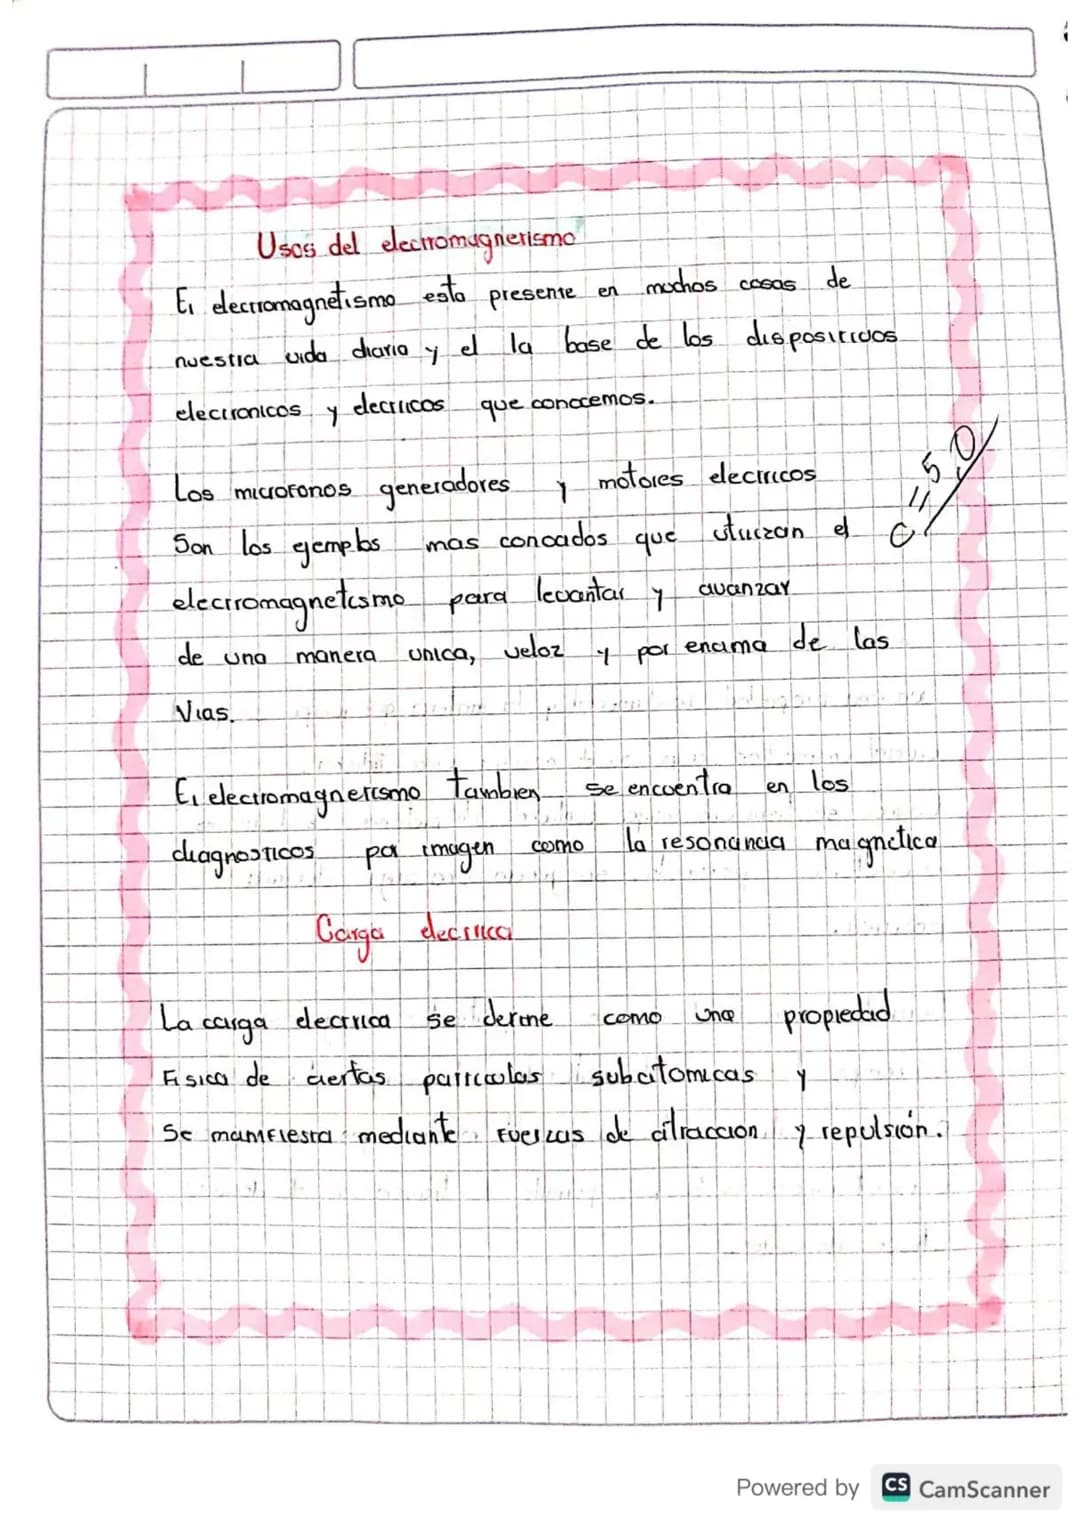 Usos del electromagnetismo
El electromagnetismo esta presente en muchos cosas de
nuestra vida diaria y el la base de los dispositivos
electronicos y electricos que conocemos.
Los microfonos generadores y motores electricos
Son los ejemplos mas conocidos que utilizan el
electromagnetismo para levantar y avanzar
de una manera unica, veloz y por encima de las
Vias.
C = 5,0
El electromagnetismo tambien se encuentra en los
diagnosticos por imagen como la resonancia magnetica
Carga electrica
La carga electrica se define como una propiedad
Fisica de ciertas particulas subatomicas y
Se manifiesta mediante Fuerzas de atraccion y repulsión.
Powered by CS CamScanner